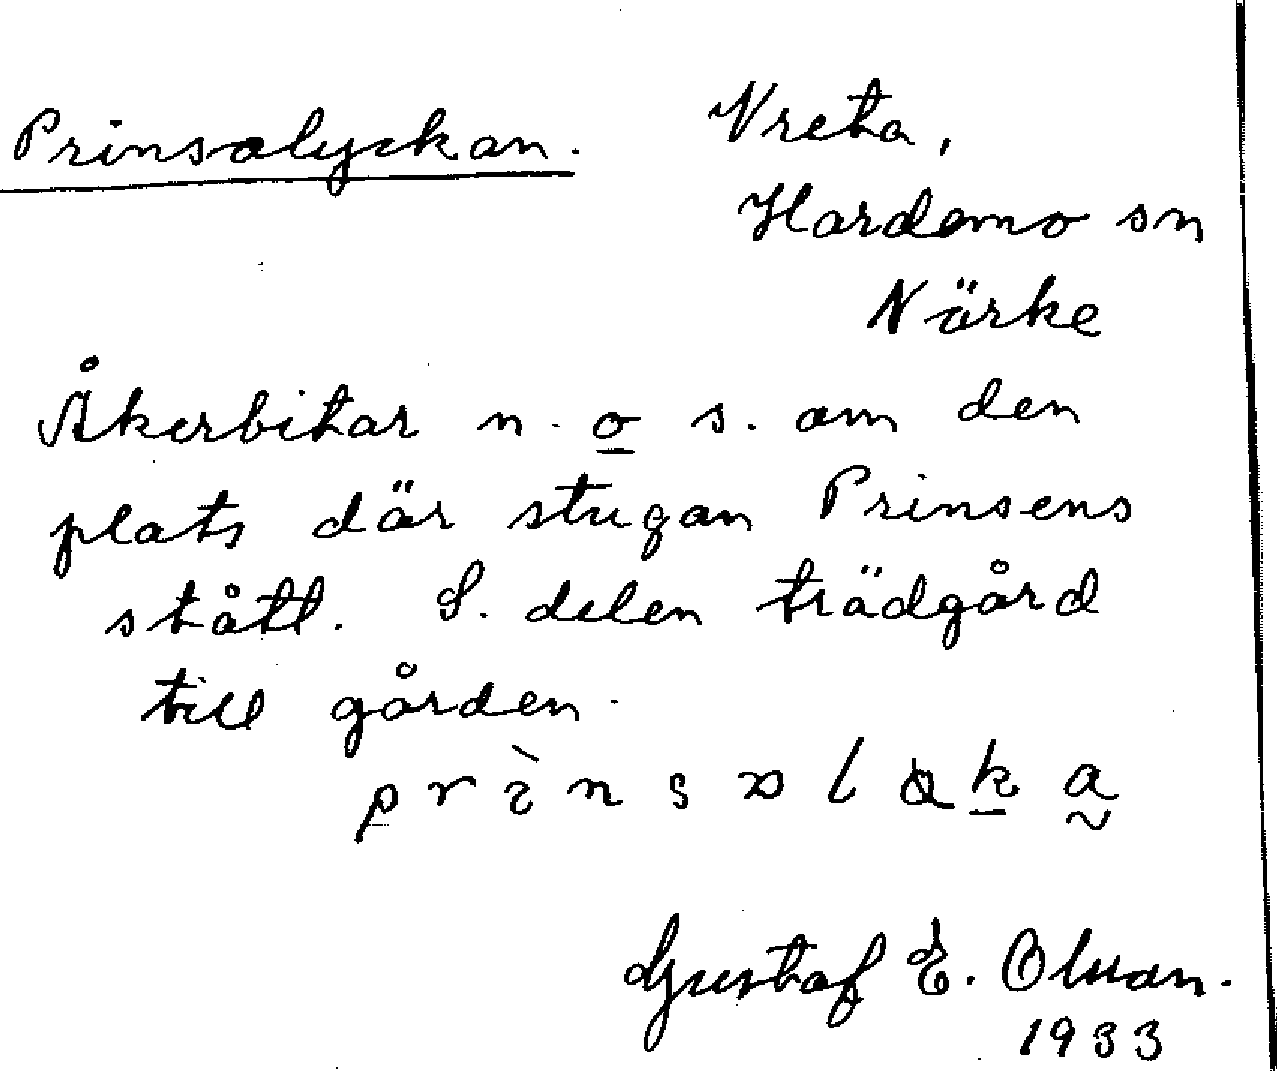 Prinsalyckan. Vreta,
Hardemo sn
Närke
Åkerbitar n. o s. om den
plats där stugan Prinsens
stått. S. delen trädgård
till gården.
Gustaf E. Olsson.
1933